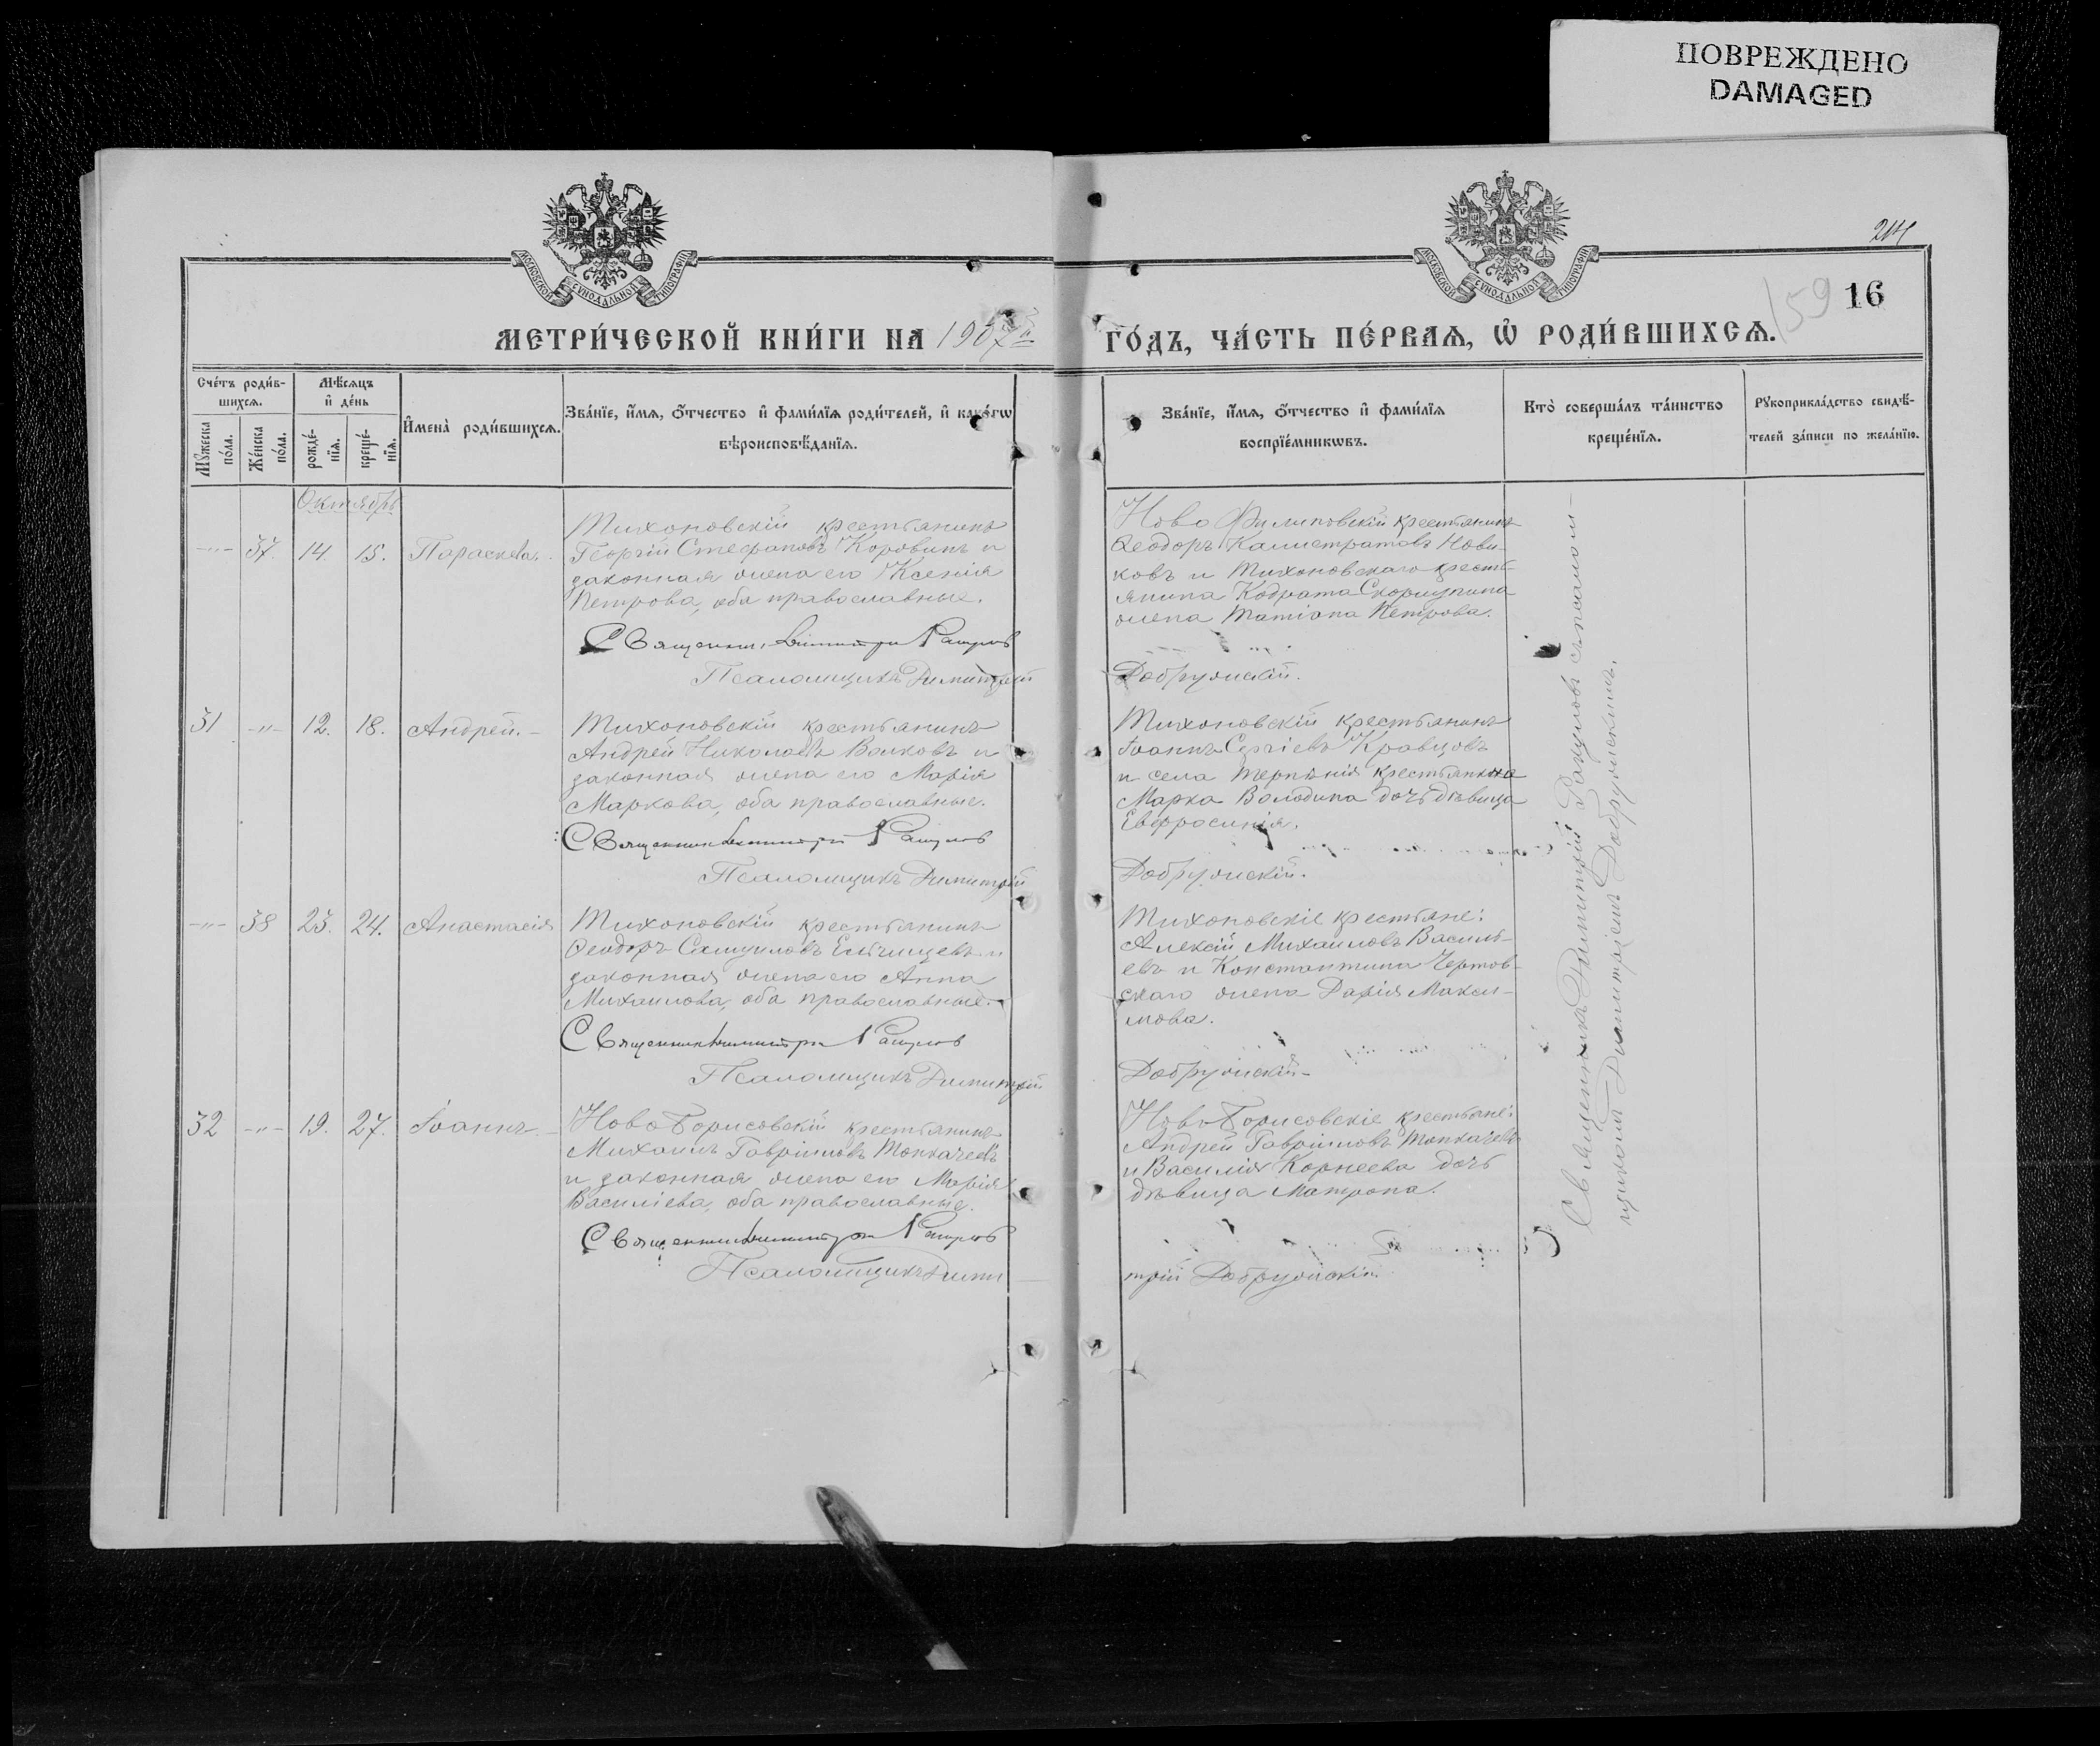 ПОВРЕЖДЕНО
DAMAGED
МОСКОВСКОЙ СѴНОДАЛЬНОЙ ТИПОГРАФІИ
МОСКОВСКОЙ СѴНОДАЛЬНОЙ ТИПОГРАФІИ
214
159
16
МЕТРИ́ЧЕСКОЙ КНИ́ГИ НА 1907й ГО́ДЪ, ЧА́СТЬ ПЕ́РВАЯ, Ѡ҆ РОДИ́ВШИХСЯ.
Сче́тъ роди́в-
шихся.
Мѣ́сяцъ
и҆ де́нь
Мꙋ́жеска по́ла.
Же́нска по́ла.
рожде́-нїя.
креще́-нїя.
И҆мена̀ роди́вшихся.
Зва́нїе, и҆́мя, ѻ҆́тчество и҆ фами́лїя роди́телей, и҆ како́гѡ
вѣроисповѣ́данїя.
Зва́нїе, и҆́мя, ѻ҆́тчество и҆ фами́лїя
воспрїе́мникѡвъ.
Кто̀ соверша́лъ та́инство
креще́нїя.
Рꙋкоприкла́дство свидѣ́-
телей за́писи по жела́нїю.
Октябрь
-"- 37. 14. 15. Параскева.
Тихоновскій крестьянинъ
Георгій Стефановъ Коровинъ и
законная жена его Ксенія
Петрова, оба православные.
Священникъ Димитрій
Псаломщикъ Димитрій
Ново Филиповскій крестьянинъ
Ѳеодоръ Калистратовъ Нови-
ковъ и Тихоновскаго кресть-
янина Кодрата Скорнупина
жена Татіана Петрова.
Добружскій.
31 -"- 12. 18. Андрей.
Тихоновскій крестьянинъ
Андрей Николаевъ Волковъ и
законная жена его Марія
Маркова, оба православные.
Священникъ Димитрій
Псаломщикъ Димитрій
Тихоновскій крестьянинъ
Іоаннъ Сергіевъ Кравцовъ
и села Терпѣнія крестьянина
Марка Володина дочь дѣвица
Евфросинія.
Добружскій.
-"- 38 23. 24. Анастасія
Тихоновскій крестьянинъ
Ѳеодоръ Самуиловъ и
законная жена его Анна
Михаилова, оба православные.
Священникъ Димитрій
Псаломщикъ Димитрій
Тихоновскіе крестьяне:
Алексій Михаиловъ Василь-
евъ и Константина Чертов-
скаго жена Дарія Макси-
мова.
Добружскій
32 -"- 19. 27. Іоаннъ
Ново Борисовскій крестьянинъ
Михаилъ Гавріиловъ Толкачевъ
и законная жена его Марія
Василіева, оба православные.
Священникъ Димитрій
Псаломщикъ Дими
Ново Борисовскіе крестьяне:
Андрей Гавріиловъ Толкачевъ
и Василія Корнеева дочь
дѣвица Матрона.
трій Добружскій
Священникъ Димитрій съ псалом-
щикомъ Димитріемъ Добружскимъ.